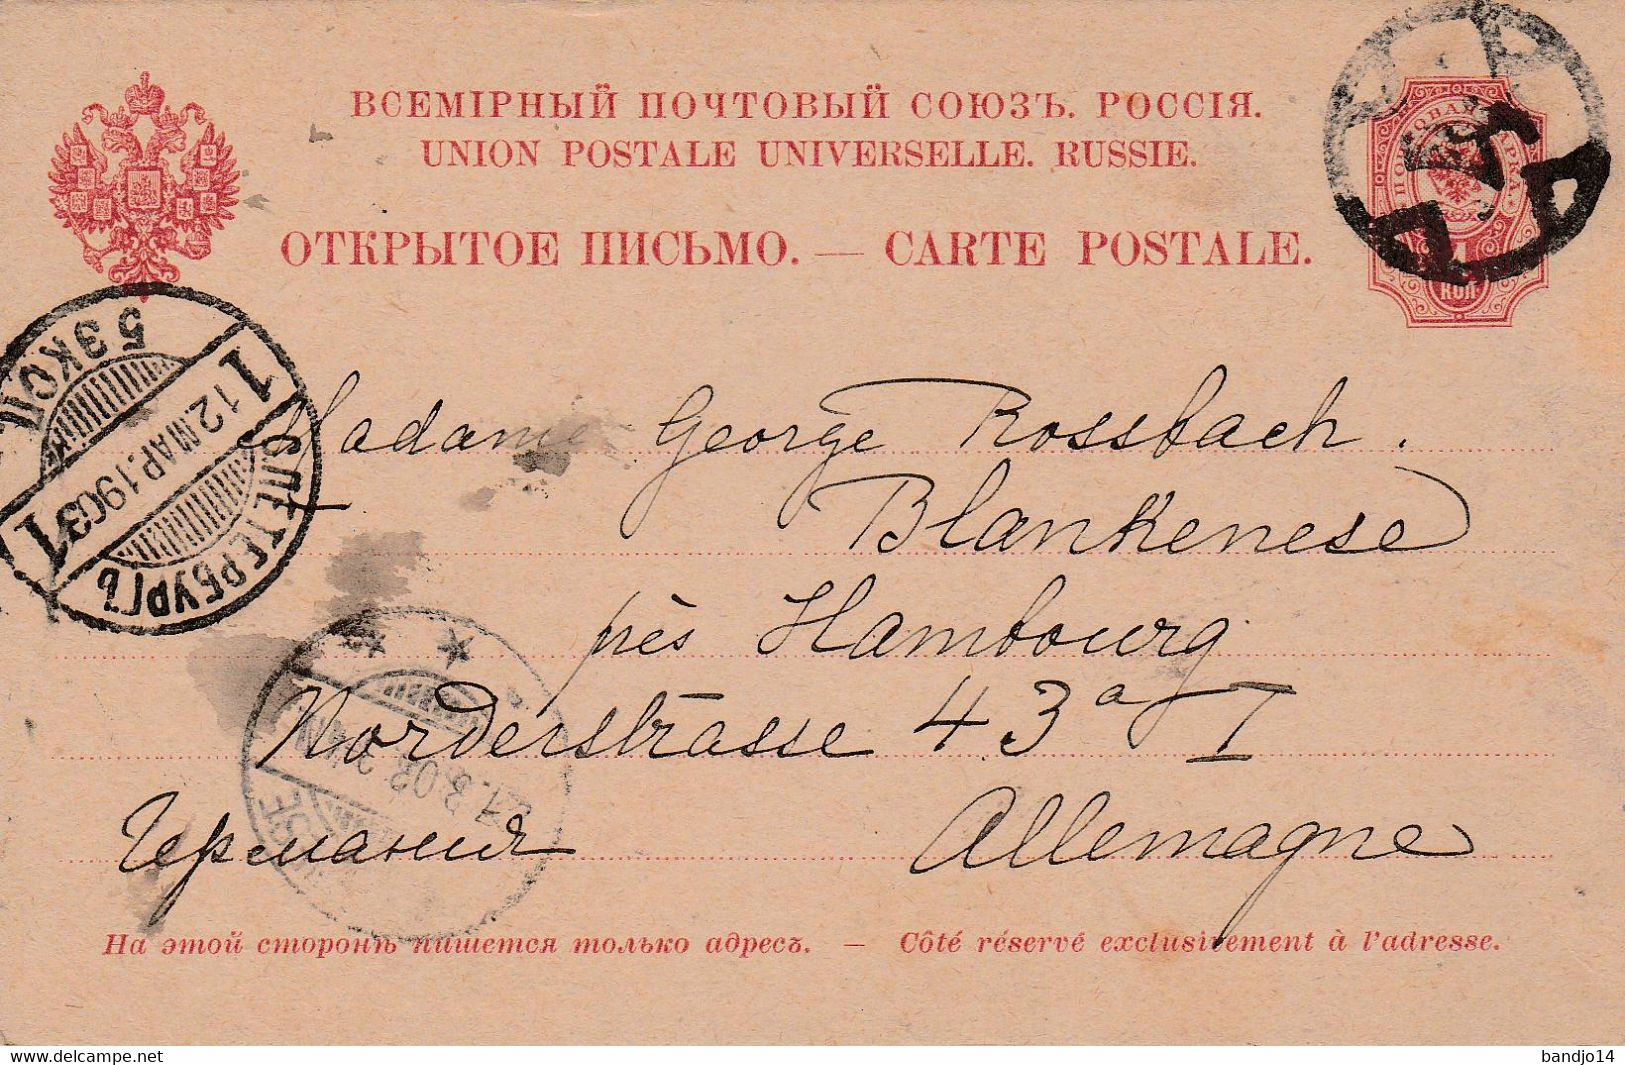 ВСЕМІРНЫЙ ПОЧТОВЫЙ СОЮЗЪ. РОССІЯ.
UNION POSTALE UNIVERSELLE. RUSSIE.
ОТКРЫТОЕ ПИСЬМО. — CARTE POSTALE.
КОП.
5 ЭКСП
1 12.МАР.1903 1
ПЕТЕРБУРГЪ
Madame George Rossbach.
Blankenese
près Hambourg
Norderstrasse 43a I
Германия Allemagne
На этой сторонѣ пишется только адресъ. — Côté réservé exclusivement à l'adresse.
www.delcampe.net
bandjo14